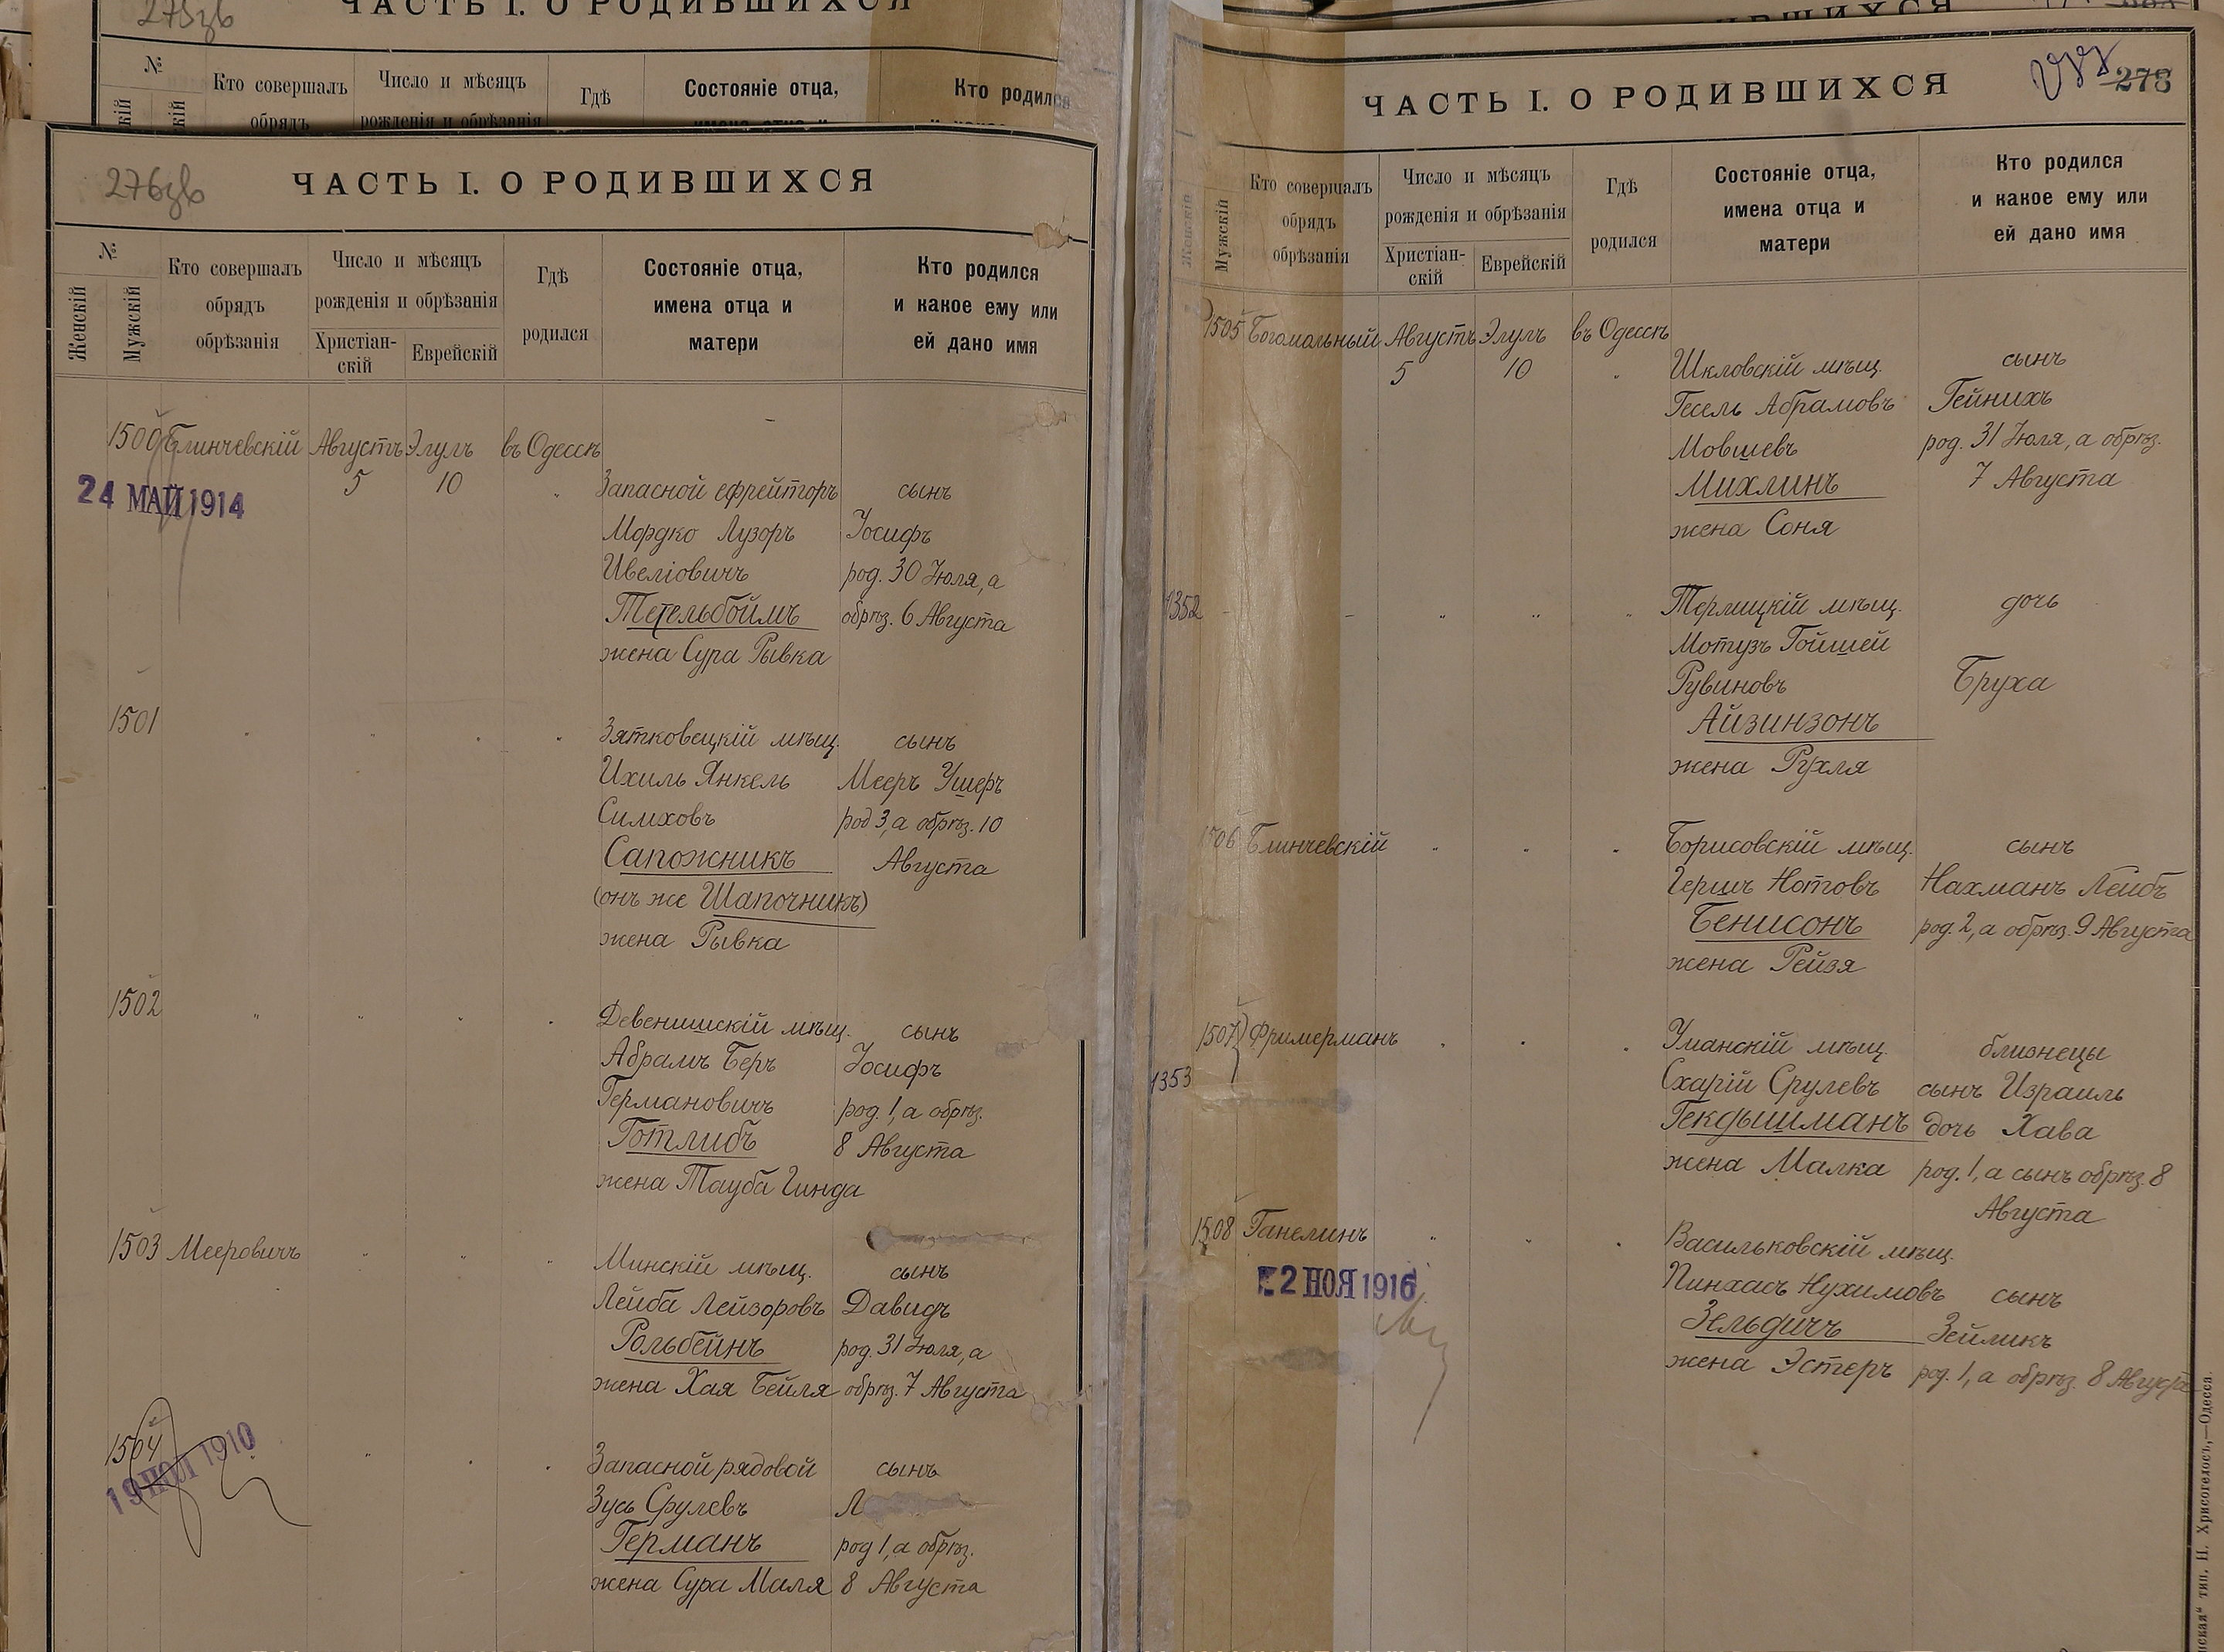 275зв
ЧАСТЬ I. О РОДИВШИХСЯ
№
Кто совершалъ
обрядъ
Число и мѣсяцъ
рожденія и обрѣзанія
Гдѣ
Состояніе отца,
Кто родился
276зв
ЧАСТЬ I. О РОДИВШИХСЯ
№
Женскій
Мужскій
Кто совершалъ
обрядъ
обрѣзанія
Число и мѣсяцъ
рожденія и обрѣзанія
Христіан-
скій
Еврейскій
Гдѣ
родился
Состояніе отца,
имена отца и
матери
Кто родился
и какое ему или
ей дано имя
1500 Блинчевскій Августъ Элулъ въ Одессѣ
5 10 " Запасной ефрейторъ сынъ
24 МАЙ 1914
Мордко Лузоръ Іосифъ
Ивеліовичъ род. 30 Іюля, а
Тетельбоймъ обрѣз. 6 Августа
жена Сура Рывка
1501 " " " " Зятковецкій мѣщ. сынъ
Ихиль Янкель Мееръ Ушеръ
Симховъ род 3, а обрѣз. 10
Сапожникъ Августа
(онъ же Шапочникъ)
жена Рывка
1502 " " " " Девенишскій мѣщ. сынъ
Абрамъ Беръ Іосифъ
Германовичъ род. 1, а обрѣз.
Готлибъ 8 Августа
жена Тауба Гинда
1503 Мееровичъ " " " Минскій мѣщ. сынъ
Лейба Лейзоровъ Давидъ
Рольбейнъ род. 31 Іюля, а
жена Хая Бейля обрѣз. 7 Августа
1504 " " " Запасной рядовой сынъ
1910
Зусь Срулевъ Л
Германъ род 1, а обрѣз.
жена Сура Маля 8 Августа
278
ЧАСТЬ I. О РОДИВШИХСЯ
Женскій
Мужскій
Кто совершалъ
обрядъ
обрѣзанія
Число и мѣсяцъ
рожденія и обрѣзанія
Христіан-
скій
Еврейскій
Гдѣ
родился
Состояніе отца,
имена отца и
матери
Кто родился
и какое ему или
ей дано имя
1505 Богомольный Августъ Элулъ въ Одессѣ
5 10 " Шкловскій мѣщ. сынъ
Гесель Абрамовъ Гейнихъ
Мовшевъ род. 31 Іюля, а обрѣз.
Михлинъ 7 Августа
жена Соня
1352 - - " " " Терлицкій мѣщ. дочь
Мотузъ Гойшей
Рувиновъ Бруха
Айзинзонъ
жена Рухля
1506 Блинчевскій " " " Борисовскій мѣщ. сынъ
Гершъ Нотовъ Нахманъ Лейбъ
Бенисонъ род. 2, а обрѣз. 9 Августа
жена Рейзя
1507 Фримерманъ " " " Уманскій мѣщ. близнецы
1353 Схарій Срулевъ сынъ Израиль
Гекдышманъ дочь Хава
жена Малка род. 1, а сынъ обрѣз. 8
Августа
1508 Ганелинъ " " " Васильковскій мѣщ.
2 НОЯ 1916
Пинхасъ Нухимовъ сынъ
Зельдичъ Зейликъ
жена Эстеръ род. 1, а обрѣз. 8 Августа
тип. И. Хрисогелосъ,—Одесса.